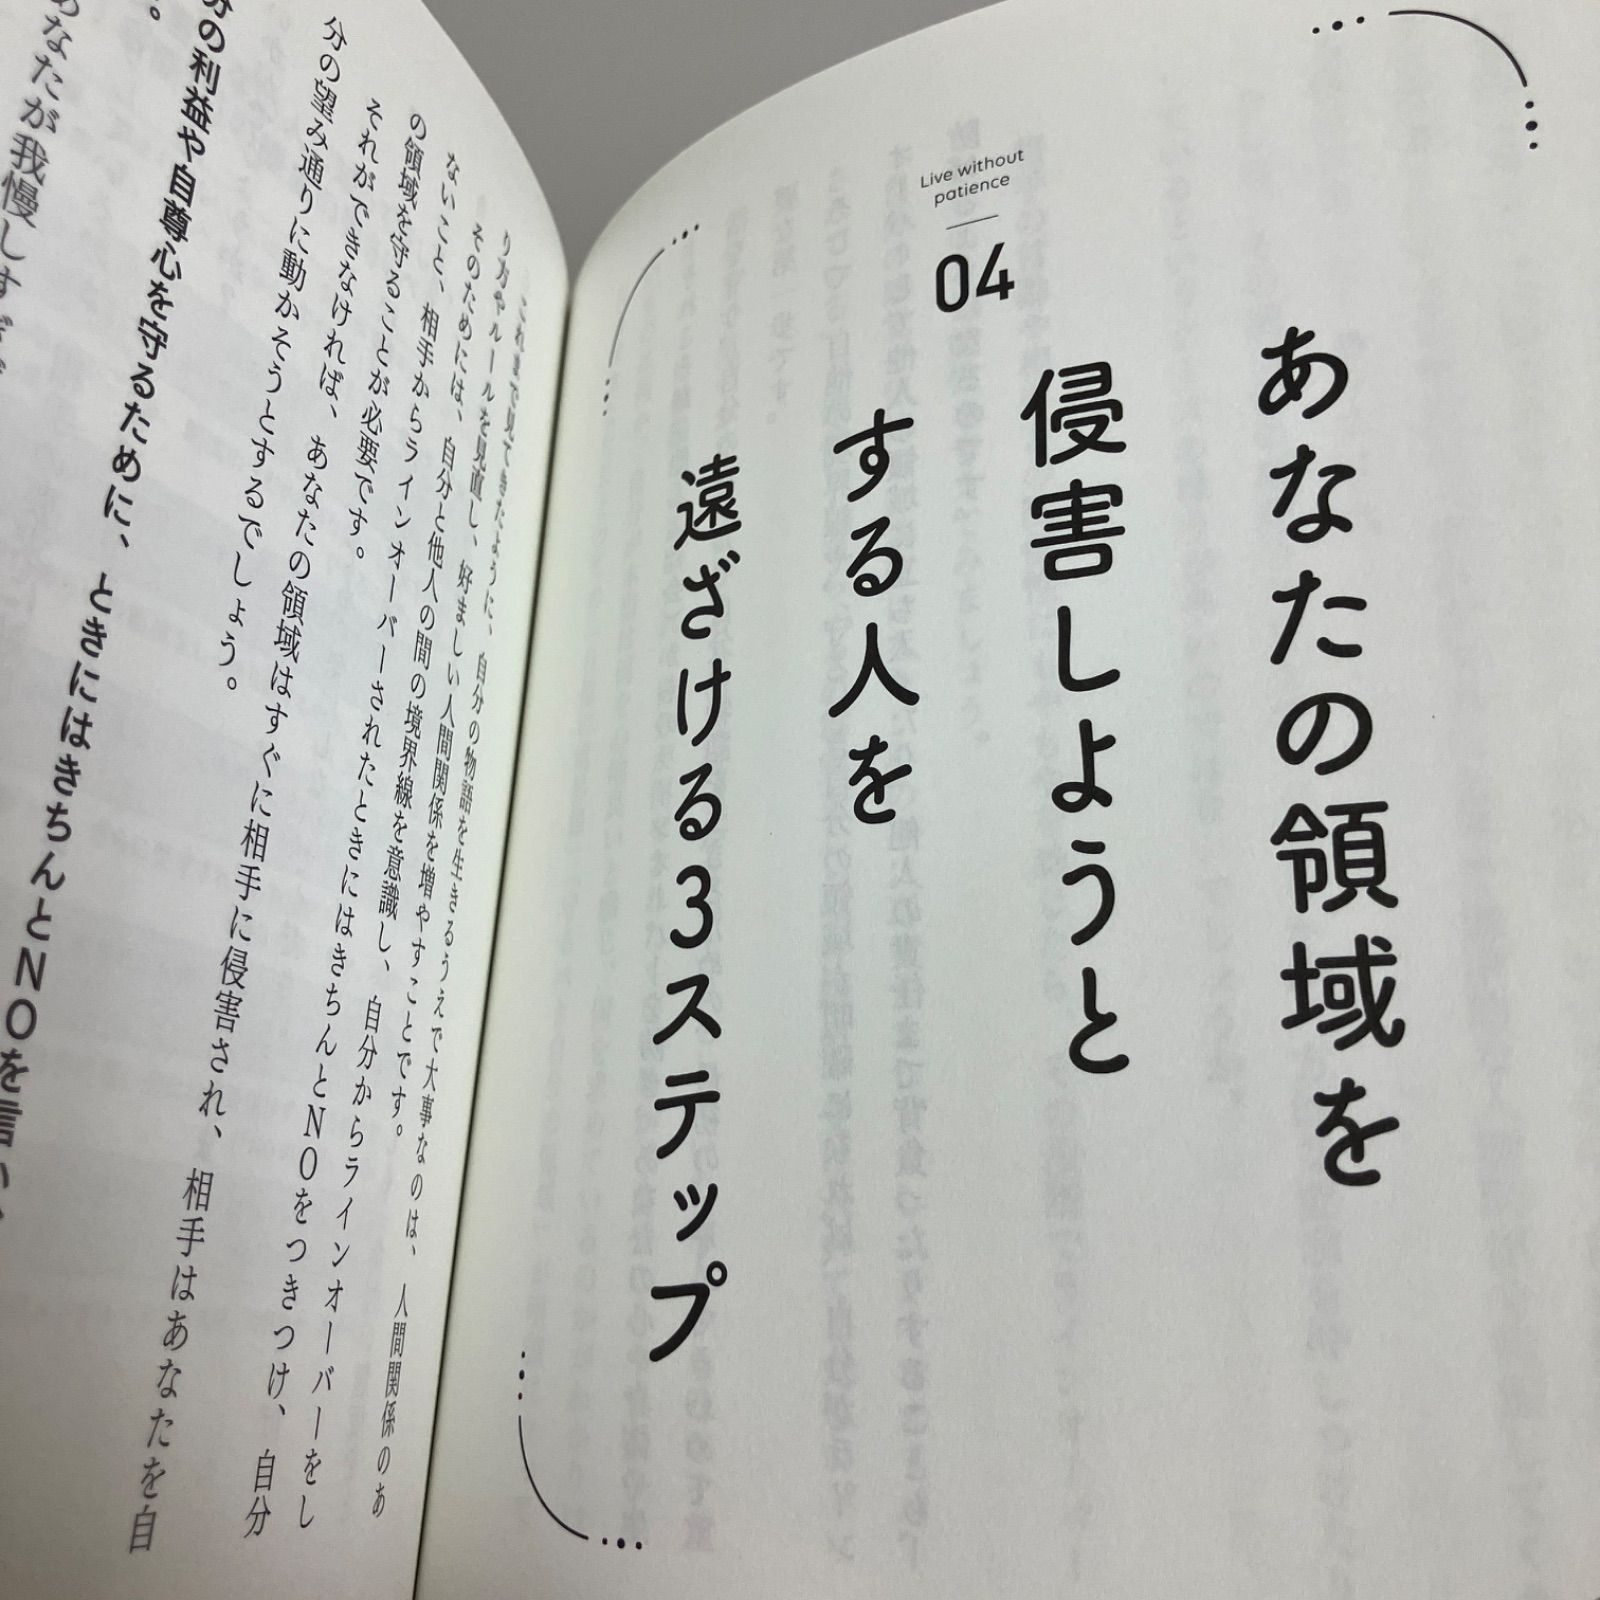 Live without
patience
04
あなたの領域を
侵害しようと
する人を
遠ざける3ステップ
これまで見てきたように、自分の物語を生きるうえで大事なのは、人間関係のあ
り方やルールを見直し、好ましい人間関係を増やすことです。
そのためには、自分と他人の間の境界線を意識し、自分からラインオーバーをし
ないこと、相手からラインオーバーされたときにはきちんとNOをつきつけ、自分
の領域を守ることが必要です。
それができなければ、あなたの領域はすぐに相手に侵害され、相手はあなたを自
分の望み通りに動かそうとするでしょう。
の利益や自尊心を守るために、ときにはきちんとNOを言い、
。
なたが我慢しすぎ